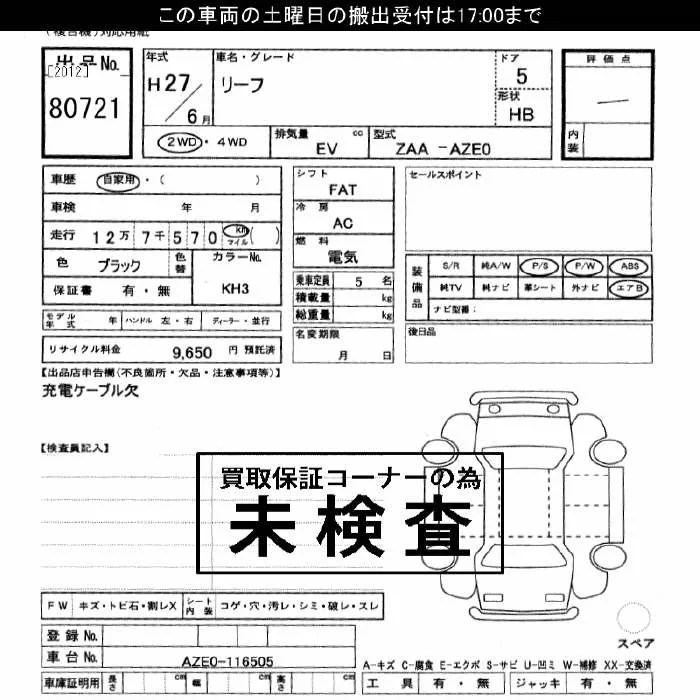 この車両の土曜日の搬出受付は17:00まで
出品No.
[2012]
80721
年式
H27/6月
車名・グレード
リーフ
ドア
5
形状
HB
評価点
―
内装
2WD・4WD
排気量 cc
EV
型式
ZAA -AZE0
車歴 自家用・( )
車検 年 月
走行 12万7千570 km マイル ( )
色 ブラック
色替
カラーNo.
KH3
保証書 有・無
シフト
FAT
冷房
AC
燃料
電気
乗車定員 5 名
積載量 kg
総重量 kg
名変期限
月 日
セールスポイント
装備品
S/R 純A/W P/S P/W ABS
純TV 純ナビ 革シート 外ナビ エアB
ナビ型番:
後日品
モデル年式 年 ハンドル 左・右 ディーラー・並行
リサイクル料金 9,650 円 預託済
【出品店申告欄(不良箇所・欠品・注意事項等)】
充電ケーブル欠
【検査員記入】
買取保証コーナーの為
未検査
FW キズ・トビ石・割レX シート内装 コゲ・穴・汚レ・シミ・破レ・スレ
登録No.
車台No. AZE0-116505
車庫証明用 長さ cm 幅 cm 高さ cm
スペア
A-キズ C-腐食 E-エクボ S-サビ U-凹ミ W-補修 XX-交換済
工具 有・無 ジャッキ 有・無